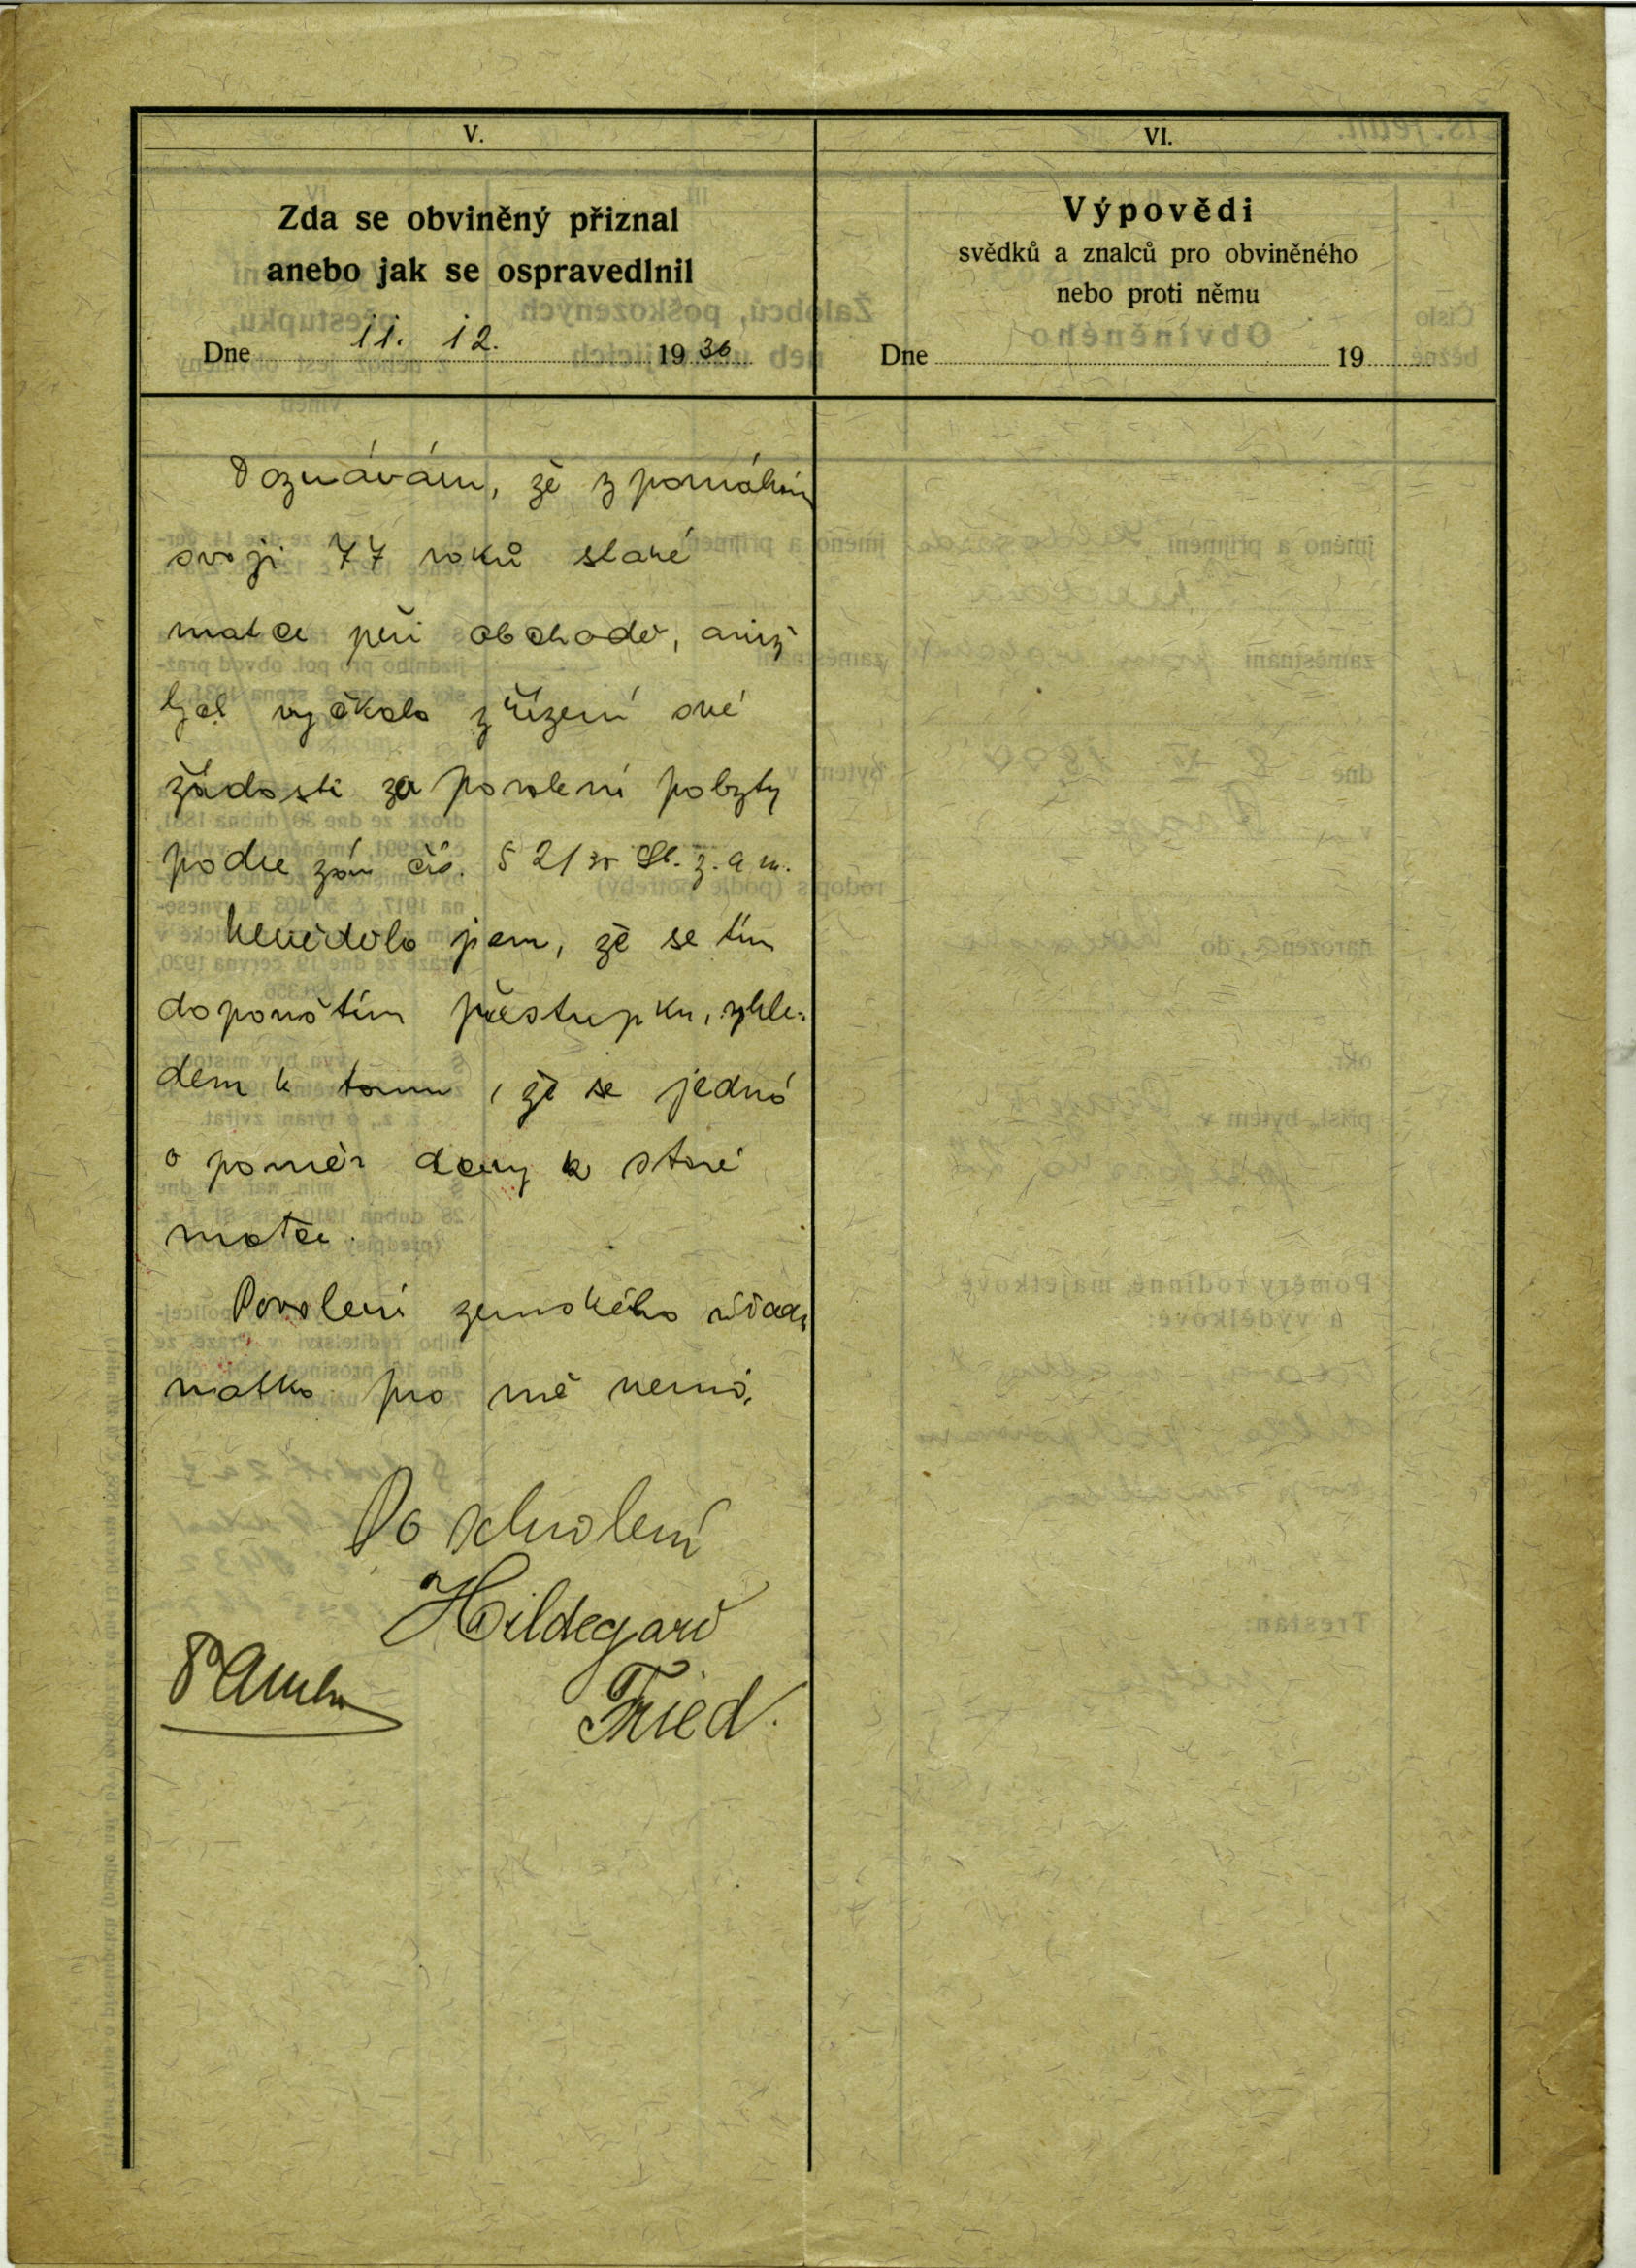 V.
Zda se obviněný přiznal
anebo jak se ospravedlnil
Dne 11. 12. 1936
Doznávám, že z pomáhám
svoji 77 roků staré
matce při obchodě, aniž
bych vyčkala zřízení své
žádosti za povolení pobytu
podle zák čís. 21 Sb. z. a n.
Nevěděla jsem, že se tím
dopouštím přestupku, vzhle-
dem k tomu, že se jedná
o poměr dcery k staré
matce.
Povolení zemského úřadu
matka pro mě nemá.
Po schválení
Hildegard
Fried.
VI.
Výpovědi
svědků a znalců pro obviněného
nebo proti němu
Dne 19